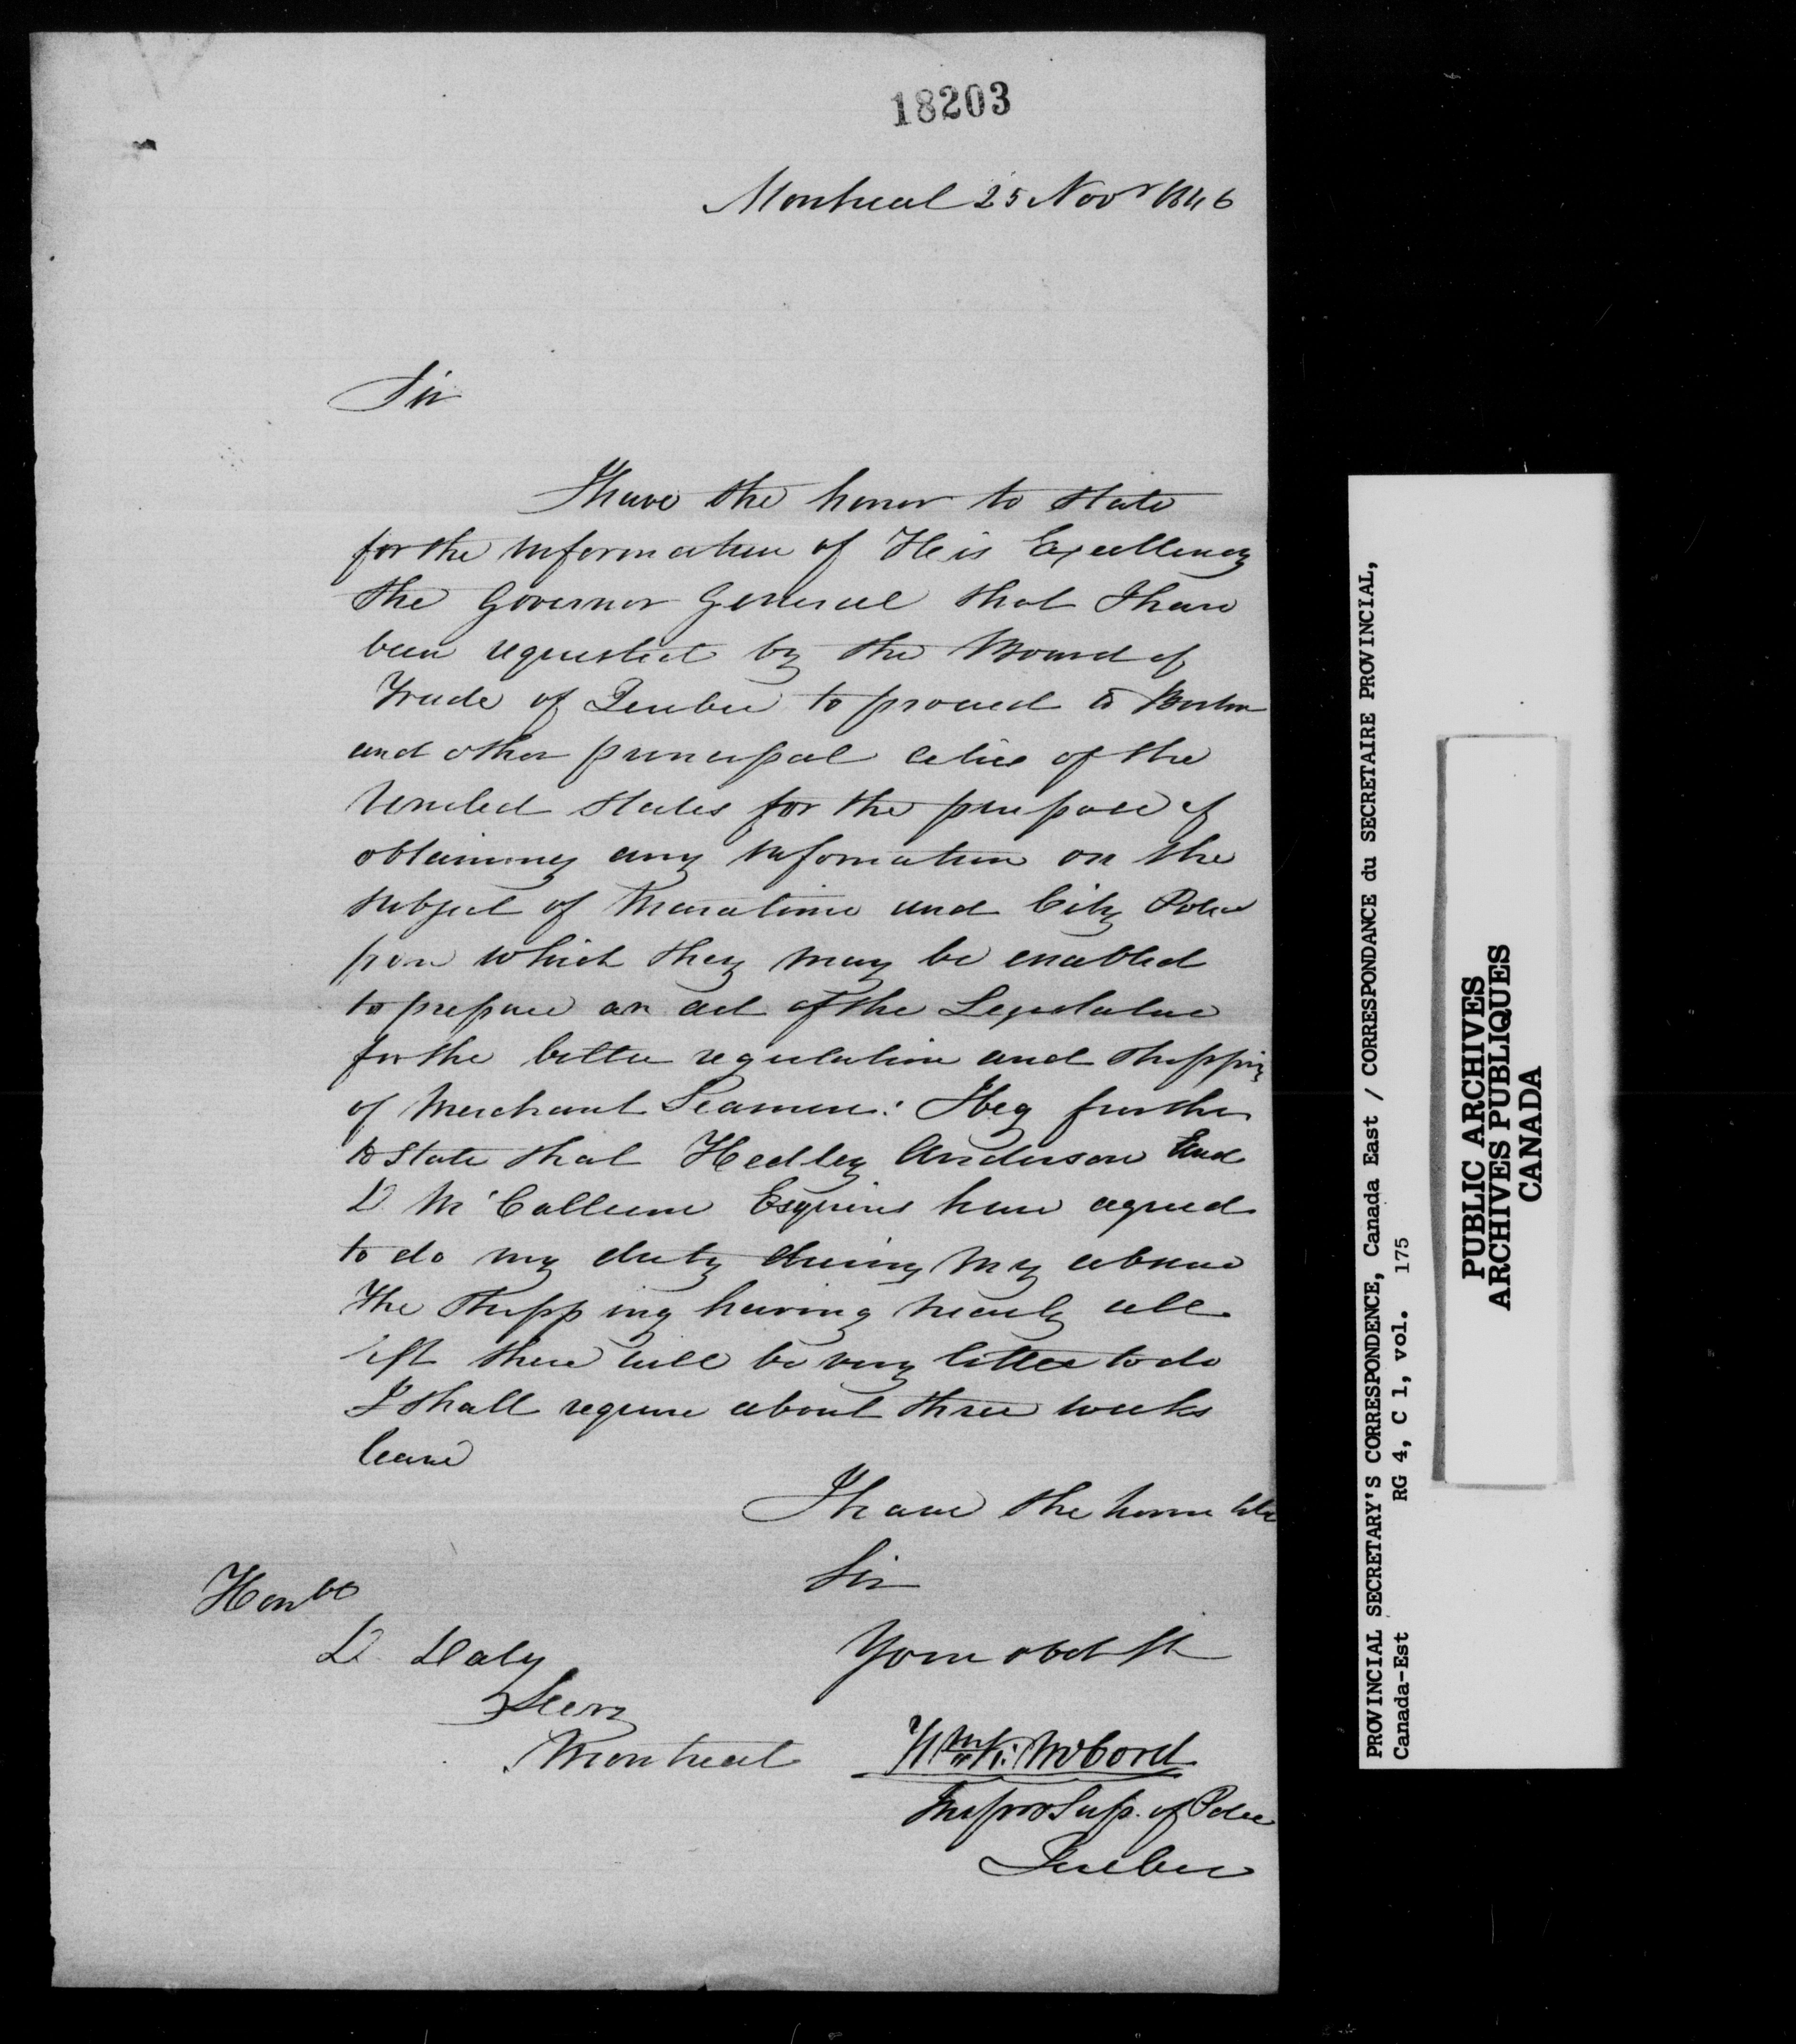 18203
Montreal 25 Novr 1846
Sir
I have the honor to state
for the information of His Excellency
the Governor General that I have
been requested by the Board of
Trade of Quebec to proceed to Boston
and other principal cities of the
United States for the purpose of
obtaining any information on the
subject of Maratime and City Police
from which they may be enabled
to prepare an act of the Legislature
for the better regulation and shipping
of Merchant Seamen: I beg further
to state that Hedley Anderson and
D McCallum Esquires have agreed
to do my duty during my absence
The Shipping having nearly all
left there will be very little to do
I shall require about three weeks
leave
I have the honor to be
Sir
Your obdt St
Honble
D Daly
Secry
Montreal
McCord
Insp & Sup. of Police
Quebec
PROVINCIAL SECRETARY'S CORRESPONDENCE, Canada East / CORRESPONDANCE du SECRETAIRE PROVINCIAL,
Canada-Est RG 4, C 1, vol. 175
PUBLIC ARCHIVES
ARCHIVES PUBLIQUES
CANADA